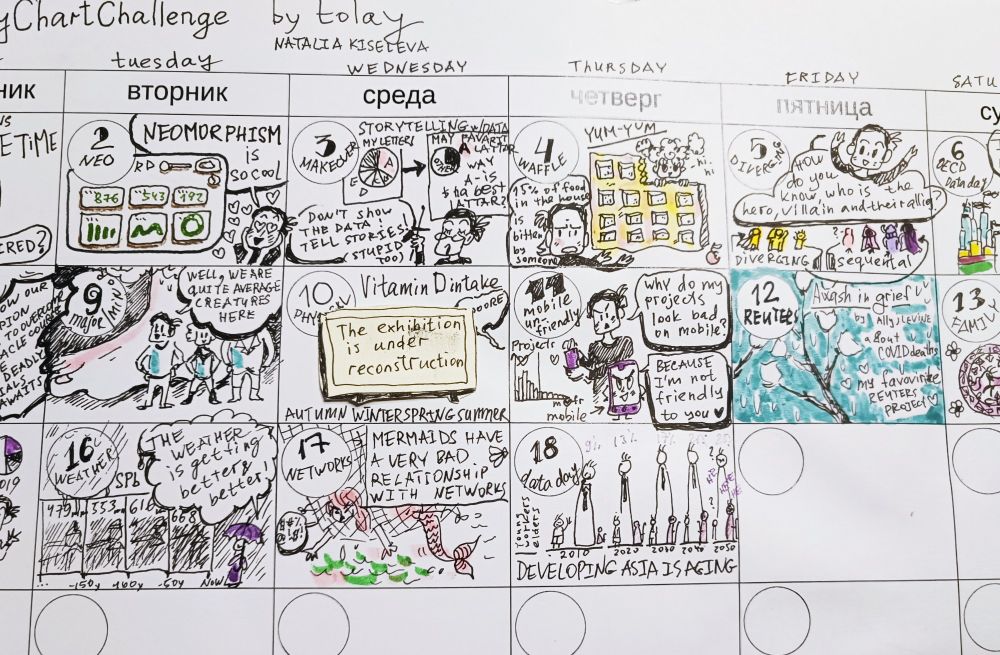 yChartChallenge by tolay
NATALIA KISELEVA
tuesday
WEDNESDAY
THURSDAY
FRIDAY
SATU
ник
вторник
среда
четверг
пятница
су
E TIME
CRED?
2
NEO
NEOMORPHISM
is
so cool
876 543 192
3
MAKEOVER
STORYTELLING w/DATA
MY LETTERS
MAY FAVARIT
LATTAR
WAY
A-is
tha best
LATTAR2
DON'T SHOW
THE DATA!
TELL STORIES!
(STUPID
TOO)
4
WAFFLE
YUM-YUM
hi
hi
15% of food
in the house
is
bitten
by
someone
5
DIVER
HOW
do you
know, who is the
hero, villain and their
DIVERGING
sequental
6
OECD
Data day
OW OUR
PION
TO OVERCOME
ACLE
E DEADLY
ALS
AWAITS
9
major
min
WELL, WE ARE
QUITE AVERAGE
CREATURES
HERE
10
Vitamin D intake
MORE
The exhibition
is under
reconstruction
AUTUMN WINTER SPRING SUMMER
11
mobile
unfriendly
Projects
mobile
why do my
projects
look bad
on mobile?
BECAUSE
I'm not
friendly
to you
12
REUTERS
Awash in grief
by Ally J. Levine
about
COVID deaths
my favourite
REUTERS
PROJECT
13
FAMILY
2019
16
WEATHER
SPb
THE
WEATHER
is getting
better &
better!
479 553 616 668
-150y -100y -50y Now
17
NETWORKS
MERMAIDS HAVE
A VERY BAD
RELATIONSHIP
WITH NETWORKS
18
data day
9% 13% 17%
Young
workers
elders
2010 2020 2030 2040 2050
DEVELOPING ASIA IS AGING